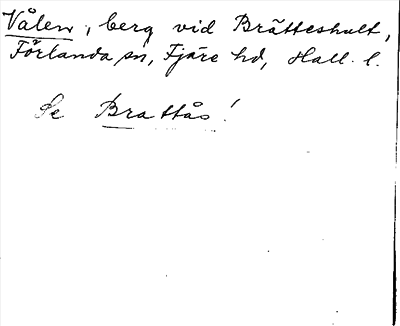 Vålen, berg vid Brätteshult,
Förlanda sn, Fjäre hd, Hall. l.
Se Brattås!